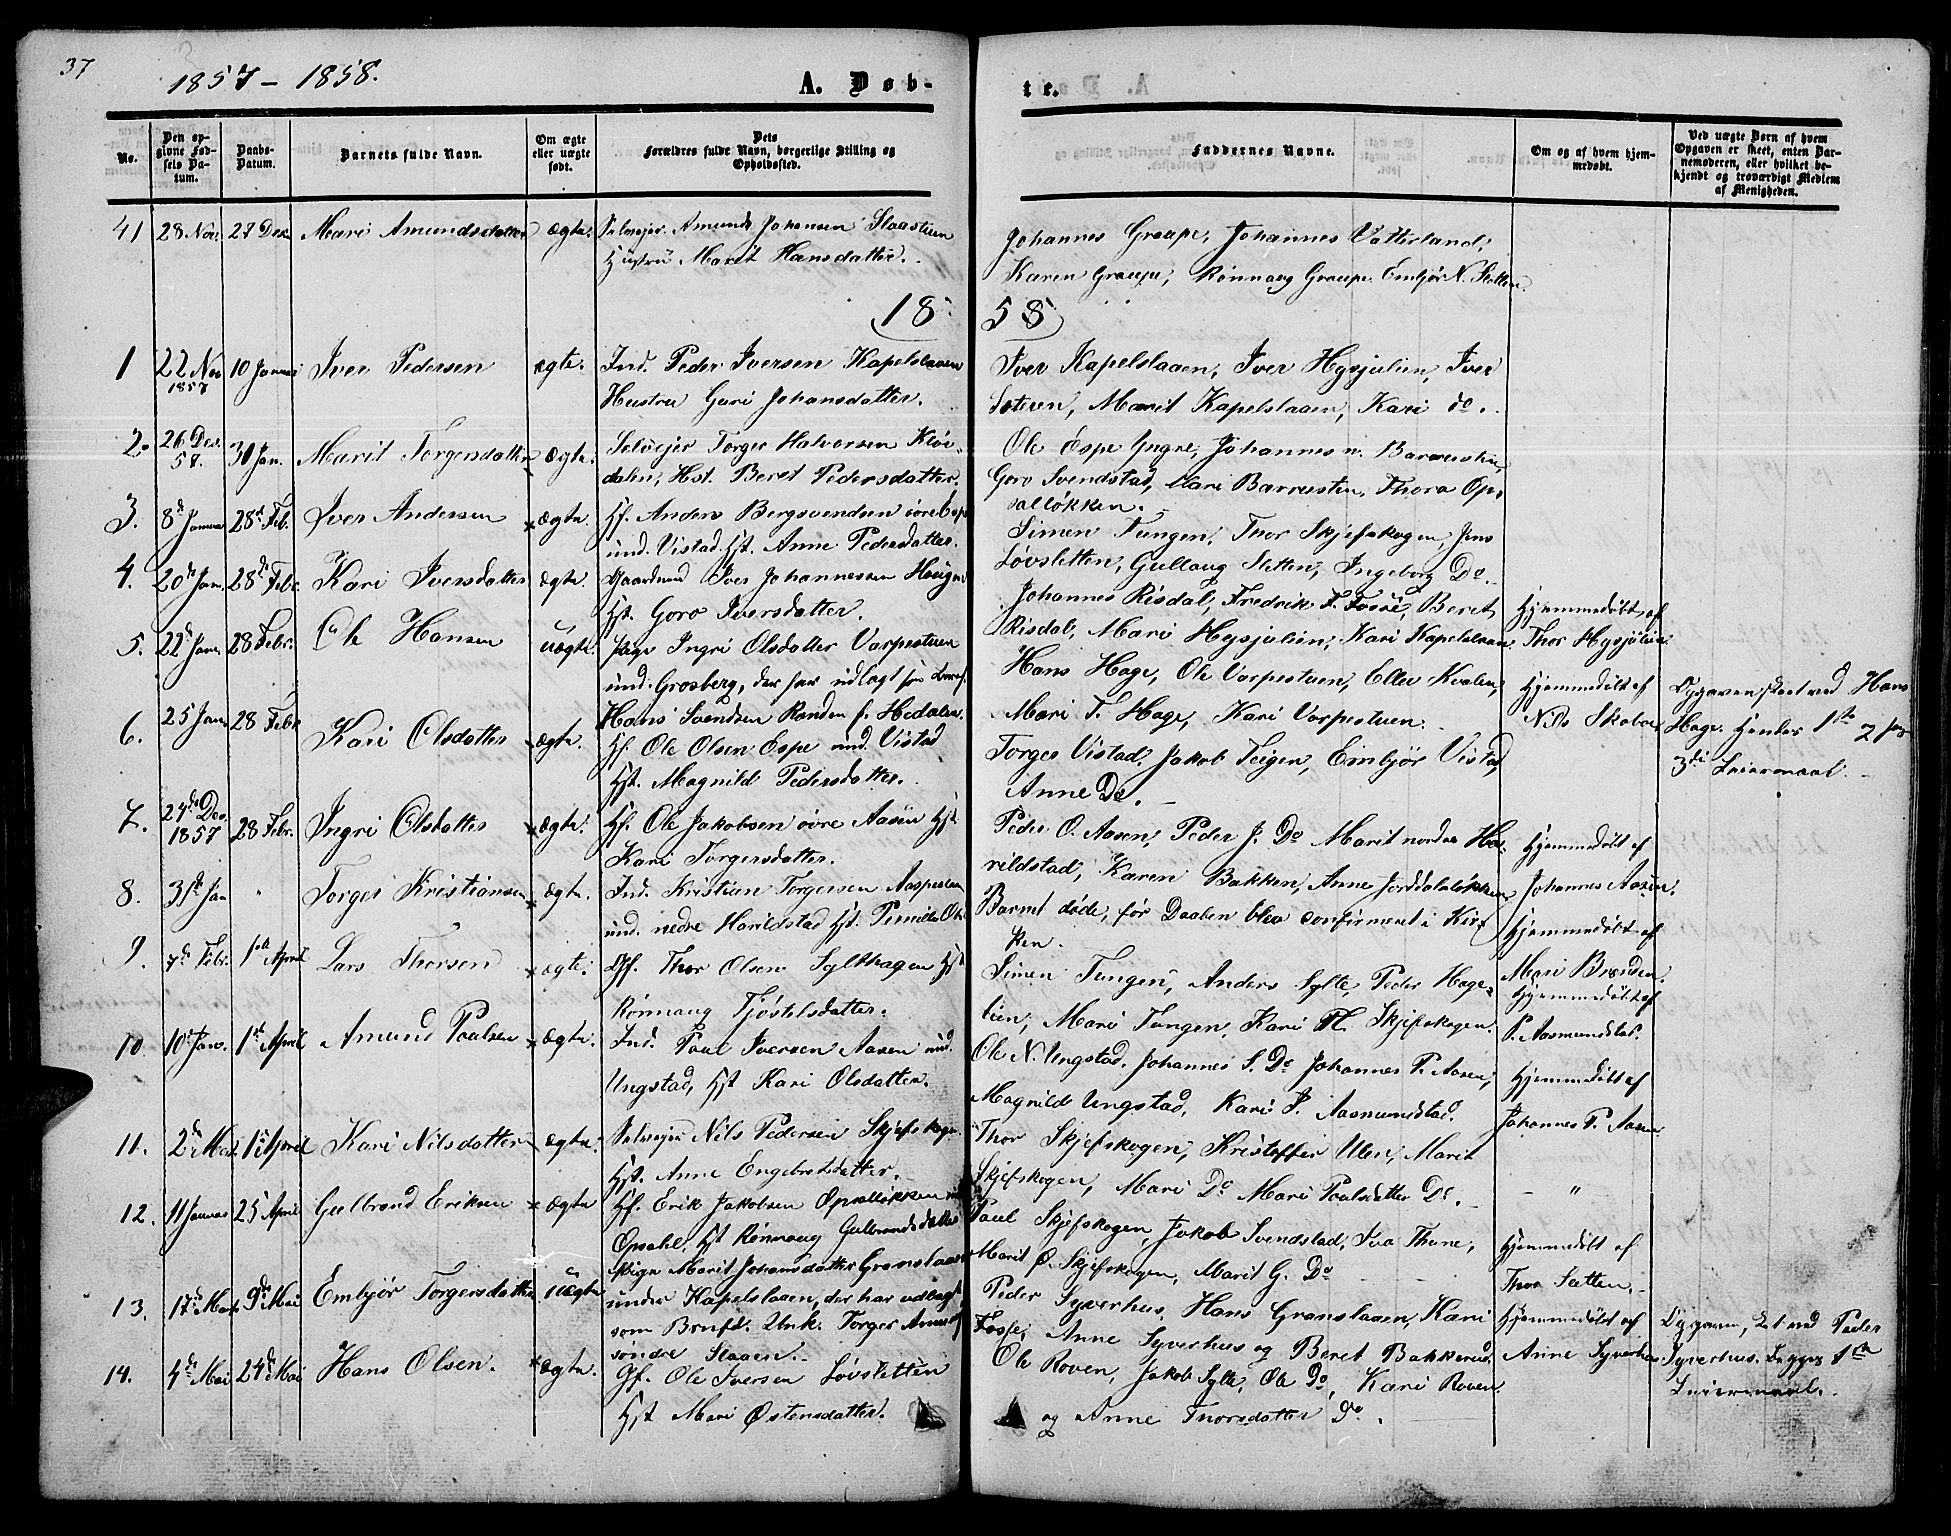 37
1857 - 1858.
A. Døb-
te.
No.
Den op-
givne Fød-
sels Da-
tum.
Daabs-
Datum.
Barnets fulde Navn.
Om ægte
eller uægte
født.
Dets
Forældres fulde Navn, borgerlige Stilling og
Opholdssted.
Faddernes Navne.
Om og af hvem hjem-
medøbt.
Ved uægte Børn af hvem
Opgaven er skeet, enten Bar-
nemoderen, eller hvilket be-
kjendt og troværdigt Medlem
af Menigheden.
41 28 Nov 27 Dec Mari Amundsdatter ægte. Selveier Amund Johansen Slaastuen
Hustru Marit Hansdatter.
Johannes Graupe, Johannes Vatterland,
Karen Graupe, Rønnaug Graupe Embjør N. Sletten.
18 58
1 22 Nov 1857 10 Januar Iver Pedersen ægte. Ind. Peder Iversen Kapelslaaen
Hustru Guri Johansdatter.
Iver Kapelslaaen, Iver Hysjulien, Iver
Marit Kapelslaaen, Kari do.
2. 26 Dec. 57. 30 Jan. Marit Torgersdatter ægte. Selveier Torger Halvorsen Kløv-
dalen, Hst. Beret Pedersdatter.
Ole Espe Yngre, Johannes n. Barrusten,
Goro Svendstad, Mari Barrusten, Thora Op-
salløkken.
3. 8de Januar 28de Feb. Iver Andersen ægte. Hf. Anders Bergsvendsen øvre Espe
und. Vistad Hst. Anne Pedersdatter.
Simen Tungen, Thor Skjefskogen, Jens
Løvsletten, Gullaug Sletten, Ingeborg Do.
4. 20de Jan. 28de Febr. Kari Iversdatter ægte. Gaardmd Iver Johannessen Haugen
Hst. Goro Iversdatter.
Johannes Risdal, Fredrik F. Fosse, Beret
Risdal, Mari Hysjulien, Kari Kapelslaaen
Hjemmedøbt af
Thor Hysjulien.
5. 22de Jan. 28 Febr. Ole Hansen uægte. Pige Ingri Olsdatter Vorpestuen
und. Grosberg, der har udlagt som Barnef.
Hans Svendsen Randen f. Hedalen.
Hans Hage, Ole Vorpestuen, Eller Kvalen,
Mari T. Hage, Kari Vorpestuen.
Hjemmedøbt af
Nils Skabo.
Opgaven skeet ved Hans
Hage. Hendes 1ste
3die Leiermaal.
6. 25 Jan. 28 Febr Kari Olsdatter ægte. Hf. Ole Olsen Espe und. Vistad
Hst. Magnild Pedersdatter.
Torger Vistad, Jakob Teigen, Embjør Vistad,
Anne Do.
7. 24de Dec. 1857 28 Febr. Ingri Olsdatter ægte. Hf. Ole Jakobsen øvre Aasen Hst.
Kari Torgersdatter.
Peder O. Aasen, Peder J. Do Marit nordre Ha-
rildstad, Karen Bakken, Anne Jorddalsløkken
Hjemmedøbt af
Johannes Aasen.
8. 31te Jan " Torger Kristiansen ægte. Ind. Kristian Torgersen Aaspestuen
und. nedre Harildstad Hst. Pernille Ols
Barnet døde, før Daaben blev confirmeret i Kir-
ken.
Hjemmedøbt af
Mari Brenden.
9. 7de Febr. 1ste April Lars Thorsen ægte. Gf. Thor Olsen Sylthagen Hst
Rønnaug Tjøstelsdatter.
Simen Tungen, Anders Sylte, Peder Hage-
lien, Mari Tungen, Kari Th. Skjefskogen.
Hjemmedøbt af
P. Aasmundstad.
10 10de Jan. 1ste April Amund Paulsen ægte. Ind. Paul Iversen Aasen und.
Ungstad, Hst Kari Olsdatter.
Ole N. Ungstad, Johannes S. Do Johannes P. Aasen,
Magnild Ungstad, Kari P. Aasmundstad.
Hjemmedøbt af
Johannes P. Aasen
11. 2de Mai 1ste April Kari Nilsdatter ægte. Selveier Nils Pedersen Skjefskogen
Hst. Anne Engebretsdatter.
Thor Skjefskogen, Kristoffer Ulen, Marit
Skjefskogen, Mari Do Mari Paulsdatter Do.
- "
12. 11 Januar 25 April Gulbrand Eriksen ægte Hf. Erik Jakobsen Opsalløkken und
Opsahl, Hst Rønnaug Gulbrandsdatter
Paul Skjefskogen, Jakob Svendstad, Iva Thune,
Marit Ø. Skjefskogen, Marit G. Do
Hjemmedøbt af
Thor Sætten.
13. 17de Marts 9de Mai Embjør Torgersdatter uægte Pige Marit Johansdatter Granslaaen
under Kapelslaaen, der har udlagt
som Brnfd. Unk. Torger Amundsen
søndre Slaaen.
Peder Syverhus, Hans Granslaaen, Kari
Fosse, Anne Syverhus og Beret Bakkerud.
Hjemmedøbt af
Anne Syverhus
Opgaven, skeet ved Peder
Syverhus. Begges 1ste
Leiermaal.
14. 4de Mai 24de Mai Hans Olsen. ægte. Gf. Ole Iversen Løvsletten
Hst Mari Østensdatter.
Ole Roven, Jakob Sylte, Ole Do, Kari Roven
og Anne Thorsdatter Do.